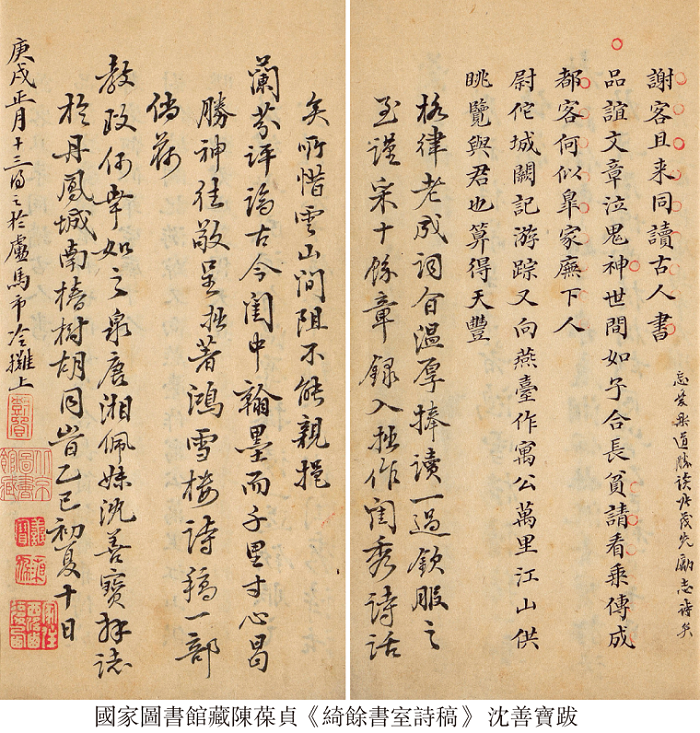 謝客且来同讀古人書
勝讀張茂先勵志詩矣
品誼文章泣鬼神世間如子合長貧請看乗傳成
都客何似皐家廡下人
尉佗城闕記游踪又向燕臺作寓公萬里江山供
眺覽與君也算得天豐
格律老成詞旨温厚捧讀一過欽服之
至謹采十餘章録入拙作閨秀詩話
矣所惜雲山間阻不能親挹
蘭芬評論古今閨中翰墨而千里寸心曷
勝神往敬呈拙著鴻雪樓詩稿一部
倘荷
教政何幸如之泉唐湘佩妹沈善寶拜誌
於丹鳳城南椿樹胡同旹乙巳初夏十日
庚戌正月十三得之於盧馬市冷攤上
北京圖書館藏
國家圖書館藏陳葆貞《綺餘書室詩稿》沈善寶跋